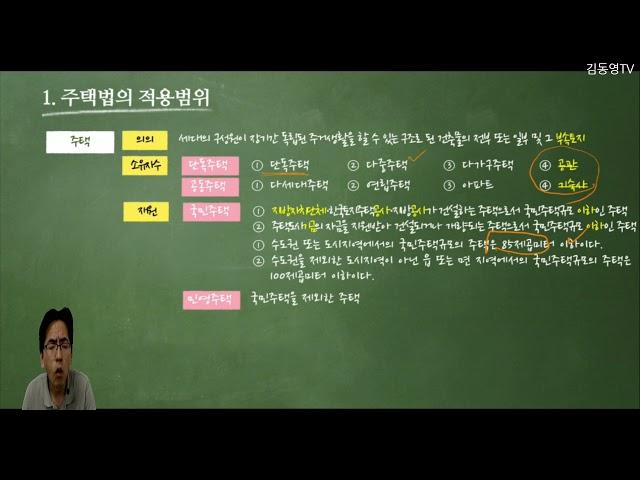 김동영TV
1. 주택법의 적용범위
주택 의의 세대의 구성원이 장기간 독립된 주거생활을 할 수 있는 구조로 된 건축물의 전부 또는 일부 및 그 부속토지
소유자수 단독주택 ① 단독주택 ② 다중주택 ③ 다가구주택 ④ 공관
공동주택 ① 다세대주택 ② 연립주택 ③ 아파트 ④ 기숙사
자원 국민주택 ① 지방자치단체·한국토지주택공사·지방공사가 건설하는 주택으로서 국민주택규모 이하인 주택
② 주택도시기금의 자금을 지원받아 건설되거나 개량되는 주택으로서 국민주택규모 이하인 주택
① 수도권 또는 도시지역에서의 국민주택규모의 주택은 85제곱미터 이하이다.
② 수도권을 제외한 도시지역이 아닌 읍 또는 면 지역에서의 국민주택규모의 주택은
100제곱미터 이하이다.
민영주택 국민주택을 제외한 주택